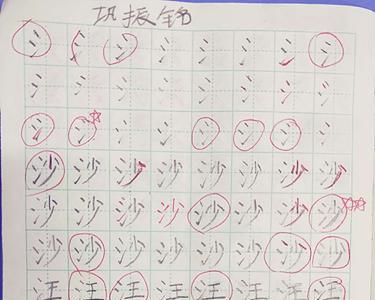 巩振铭
氵 氵 氵 氵 氵 氵 氵 氵
氵 氵 氵 氵 氵 氵 氵 氵
氵 氵 氵 氵 氵 氵 氵 氵
沙 沙 沙 沙 沙 沙 沙 沙
沙 沙 沙 沙 沙 沙 沙 沙
沙 沙 沙 沙 沙 沙 沙 沙
汪 汪 汪 汪 汪 汪 汪 汪